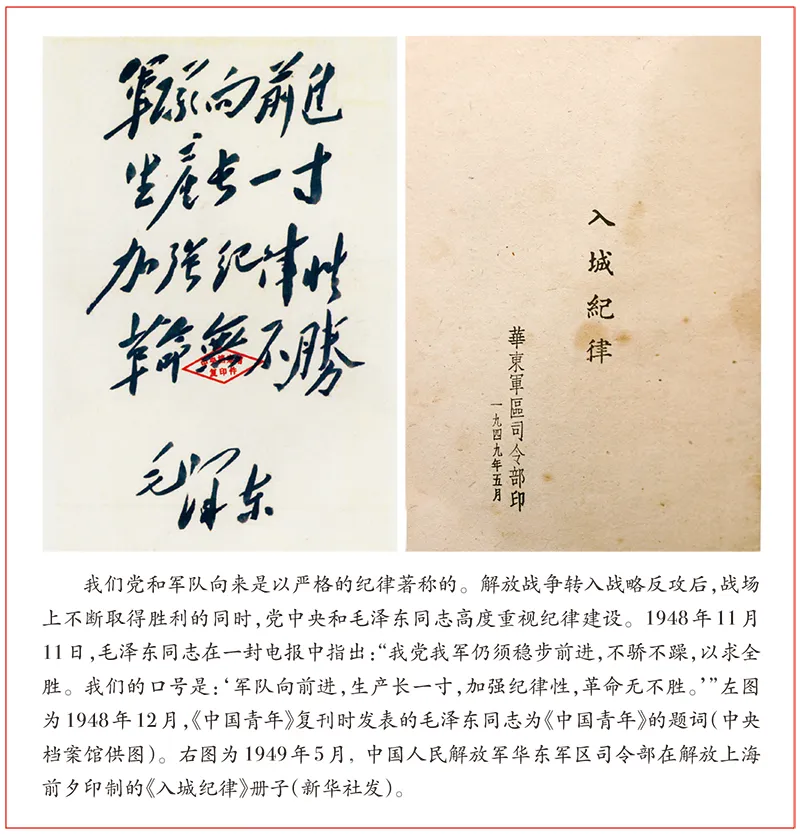 軍队向前進
生産长一寸
加強纪律性
革命無不勝
复印件
毛泽东
入城紀律
華東軍區司令部印
一九四九年五月
我们党和军队向来是以严格的纪律著称的。解放战争转入战略反攻后,战场
上不断取得胜利的同时,党中央和毛泽东同志高度重视纪律建设。1948年11月
11日,毛泽东同志在一封电报中指出:“我党我军仍须稳步前进,不骄不躁,以求全
胜。我们的口号是:‘军队向前进,生产长一寸,加强纪律性,革命无不胜。’”左图
为1948年12月,《中国青年》复刊时发表的毛泽东同志为《中国青年》的题词(中央
档案馆供图)。右图为1949年5月,中国人民解放军华东军区司令部在解放上海
前夕印制的《入城纪律》册子(新华社发)。